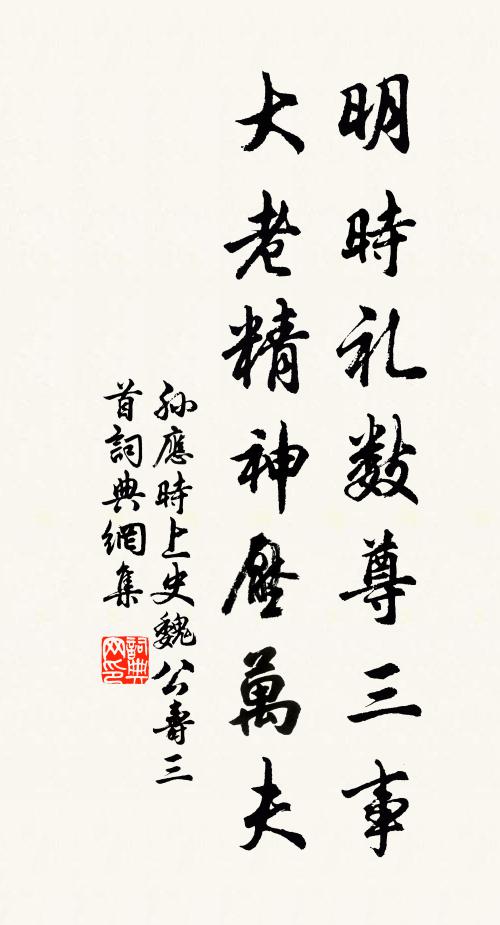 明時礼数尊三事
大老精神壓萬夫
孫應時上史魏公壽三
首詞典網集
詞典
网印